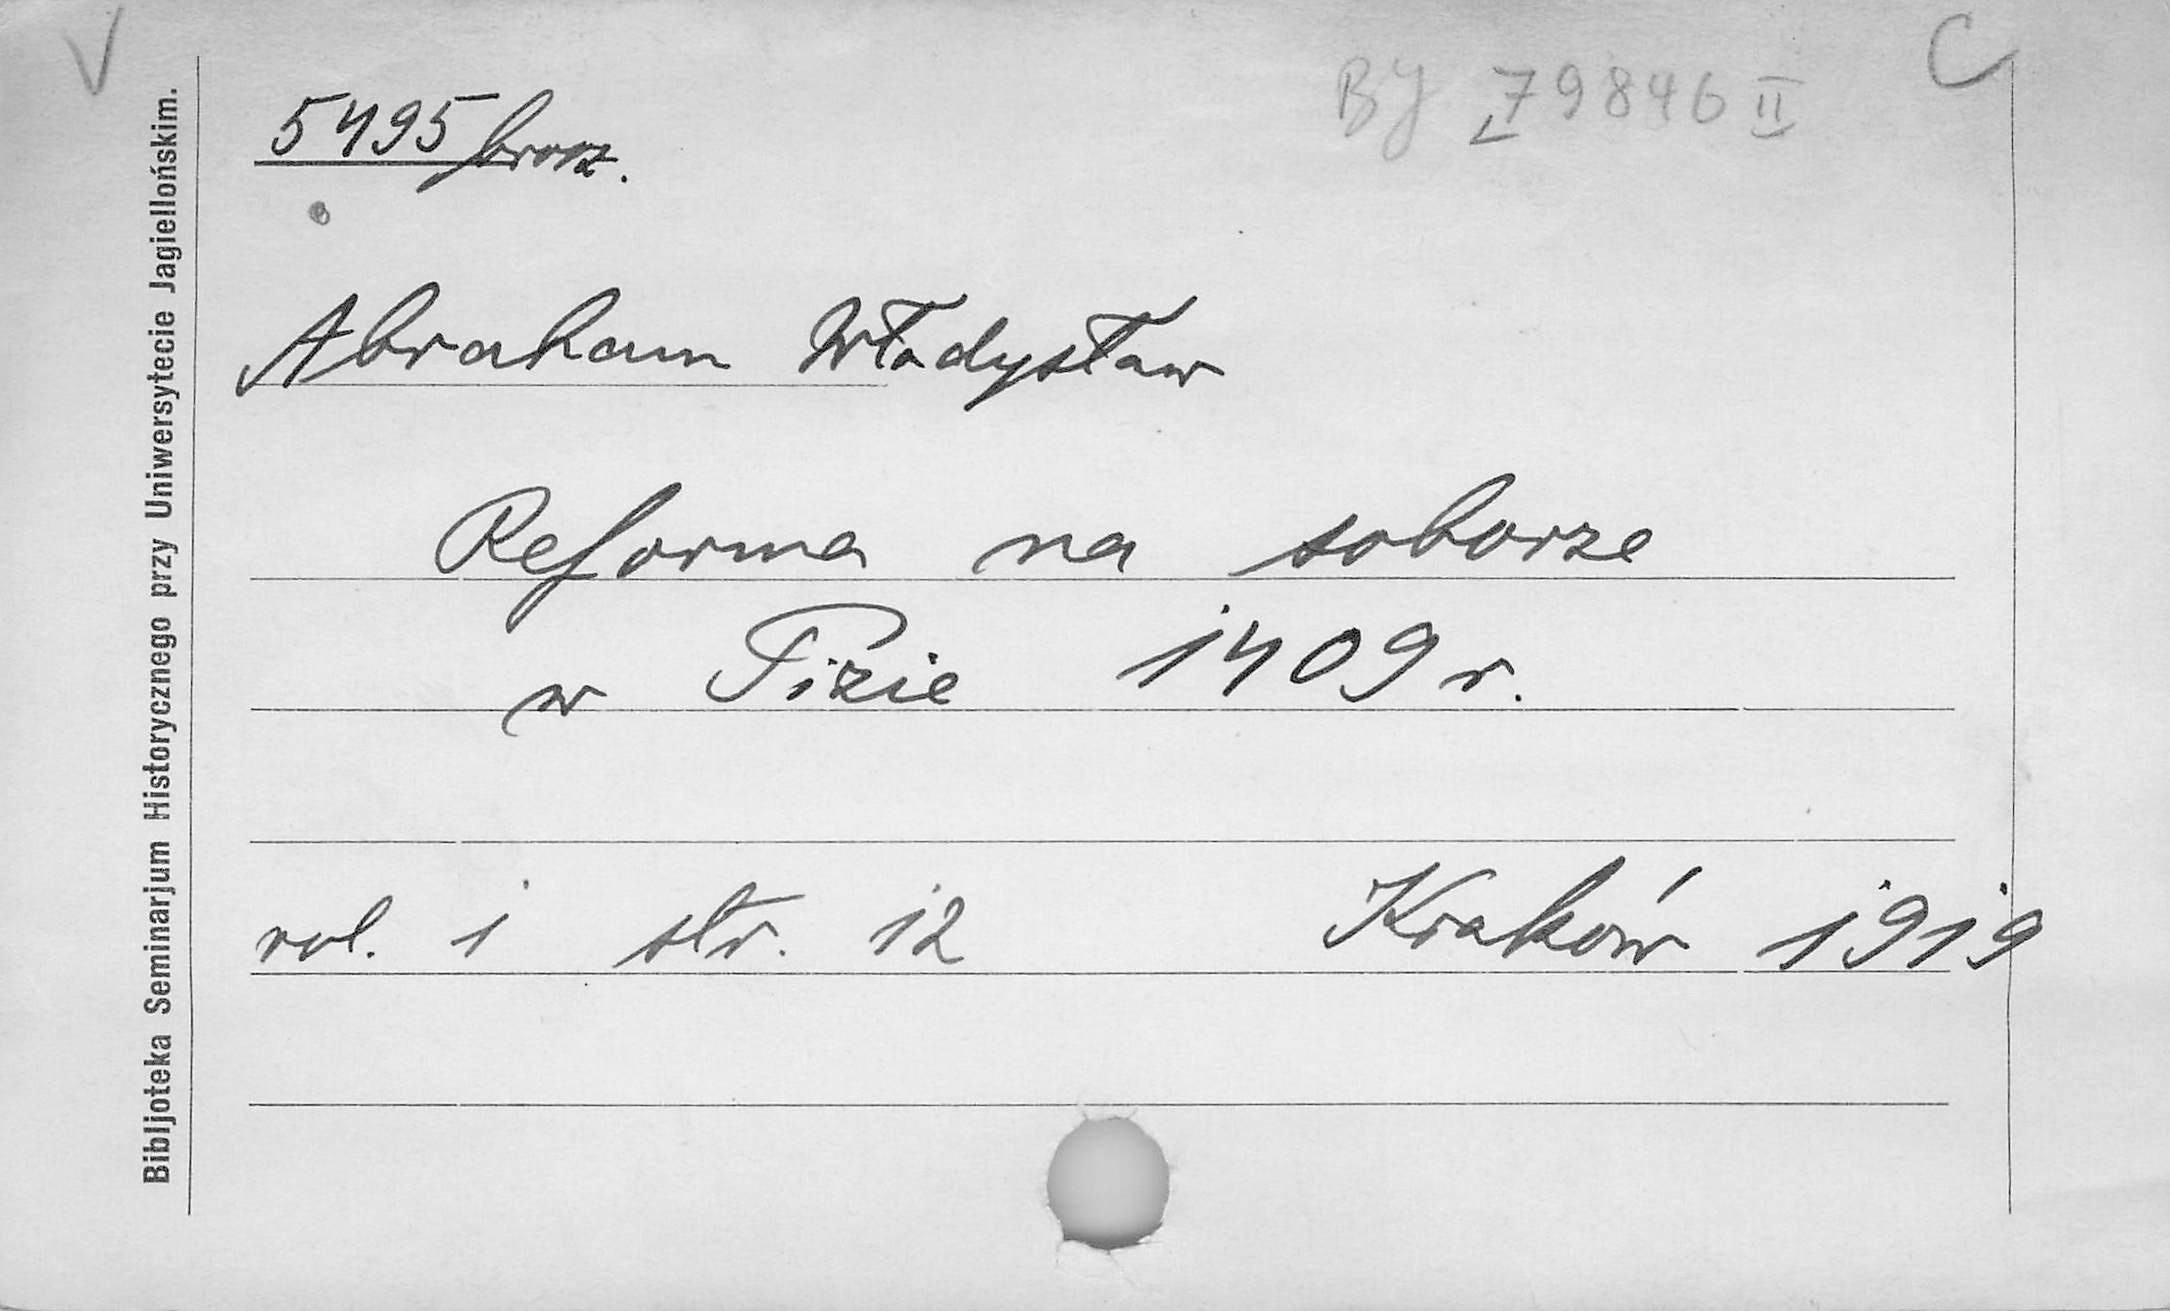 V
BJ 79846 II
C
5495 brosz.
Abraham Władysław
Reforma na soborze
w Pizie 1409 r.
vol. 1 str. 12 Kraków 1919
Bibljoteka Seminarjum Historycznego przy Uniwersytecie Jagiellońskim.